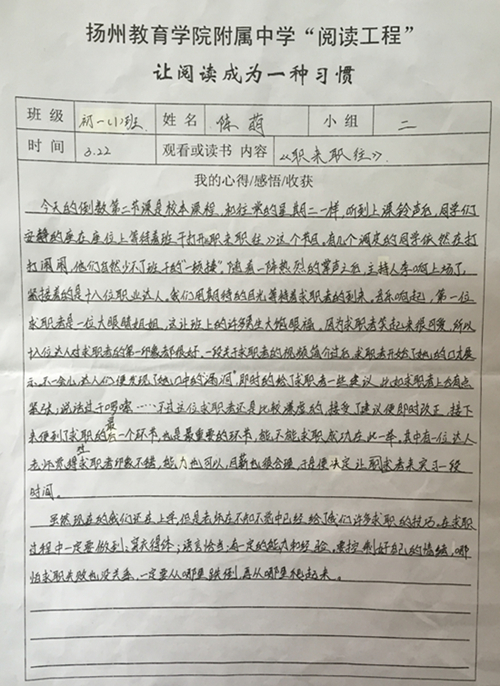 扬州教育学院附属中学“阅读工程”
让阅读成为一种习惯
班级 初一(1)班 姓名 陈萌 小组 二
时间 3.22 观看或读书 内容 《职来职往》
我的心得/感悟/收获
今天的倒数第二节课是校本课程,和往常的星期二一样,听到上课铃声后,同学们
安静的座在座位上等待着班干打开《职来职往》这个节目。有几个调皮的同学依然在打
打闹闹,他们自然少不了班干的“一顿揍”。随着一阵热烈的掌声之后,主持人李响上场了,
紧接着的是十八位职业达人。我们用期待的目光等待着求职者的到来,音乐响起,第一位
求职者是一位大眼睛姐姐,这让班上的许多男生大饱眼福。因为求职者笑起来很可爱,所以
十八位达人对求职者的第一印象都很好,一段关于求职者的视频简介过后,求职者开始了她的口才展
示,不一会儿,达人们便发现了她口中的“漏洞”即时的给了求职者一些建议,比如求职者上台有点
紧张;说话过于啰嗦……不过这位求职者还是比较谦虚的,接受了建议便即时改正,接下
来便到了求职的最后一个环节,也是最重要的环节,能不能求职成功在此一举,其中有一位达人
觉得求职者印象不错,能力也可以,目薪也很合理,于是便决定让求职者来实习一段
时间。
虽然现在的我们还在上学,但是老师在不知不觉中已经给了我们许多求职的技巧。在求职
过程中一定要做到:穿衣得体;语言恰当;有一定的能力和经验,要控制好自己的情绪,哪
怕求职失败也没关系,一定要从哪里跌倒,再从哪里爬起来。